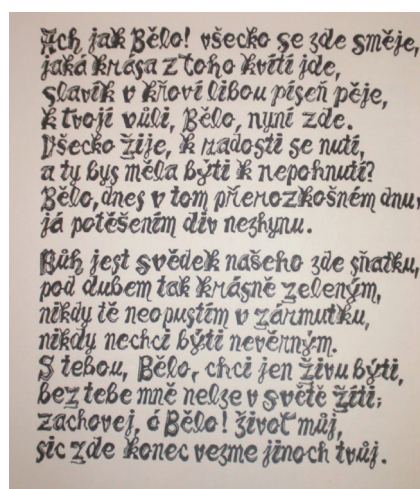 Ach jak Bělo! všecko se zde směje,
jaká krása z toho kvítí jde,
slavík v křoví libou píseň pěje,
k tvojí vůli, Bělo, nyní zde.
Všecko žije, k radosti se nutí,
a ty bys měla býti k nepohnutí?
Bělo, dnes v tom přerozkošném dnu
já potěšením div nezhynu.
Bůh jest svědek našeho zde sňatku,
pod dubem tak krásně zeleným,
nikdy tě neopustím v zármutku,
nikdy nechci býti nevěrným.
S tebou, Bělo, chci jen živu býti,
bez tebe mně nelze v světě žíti;
zachovej, ó Bělo! život můj,
sic zde konec vezme jinoch tvůj.